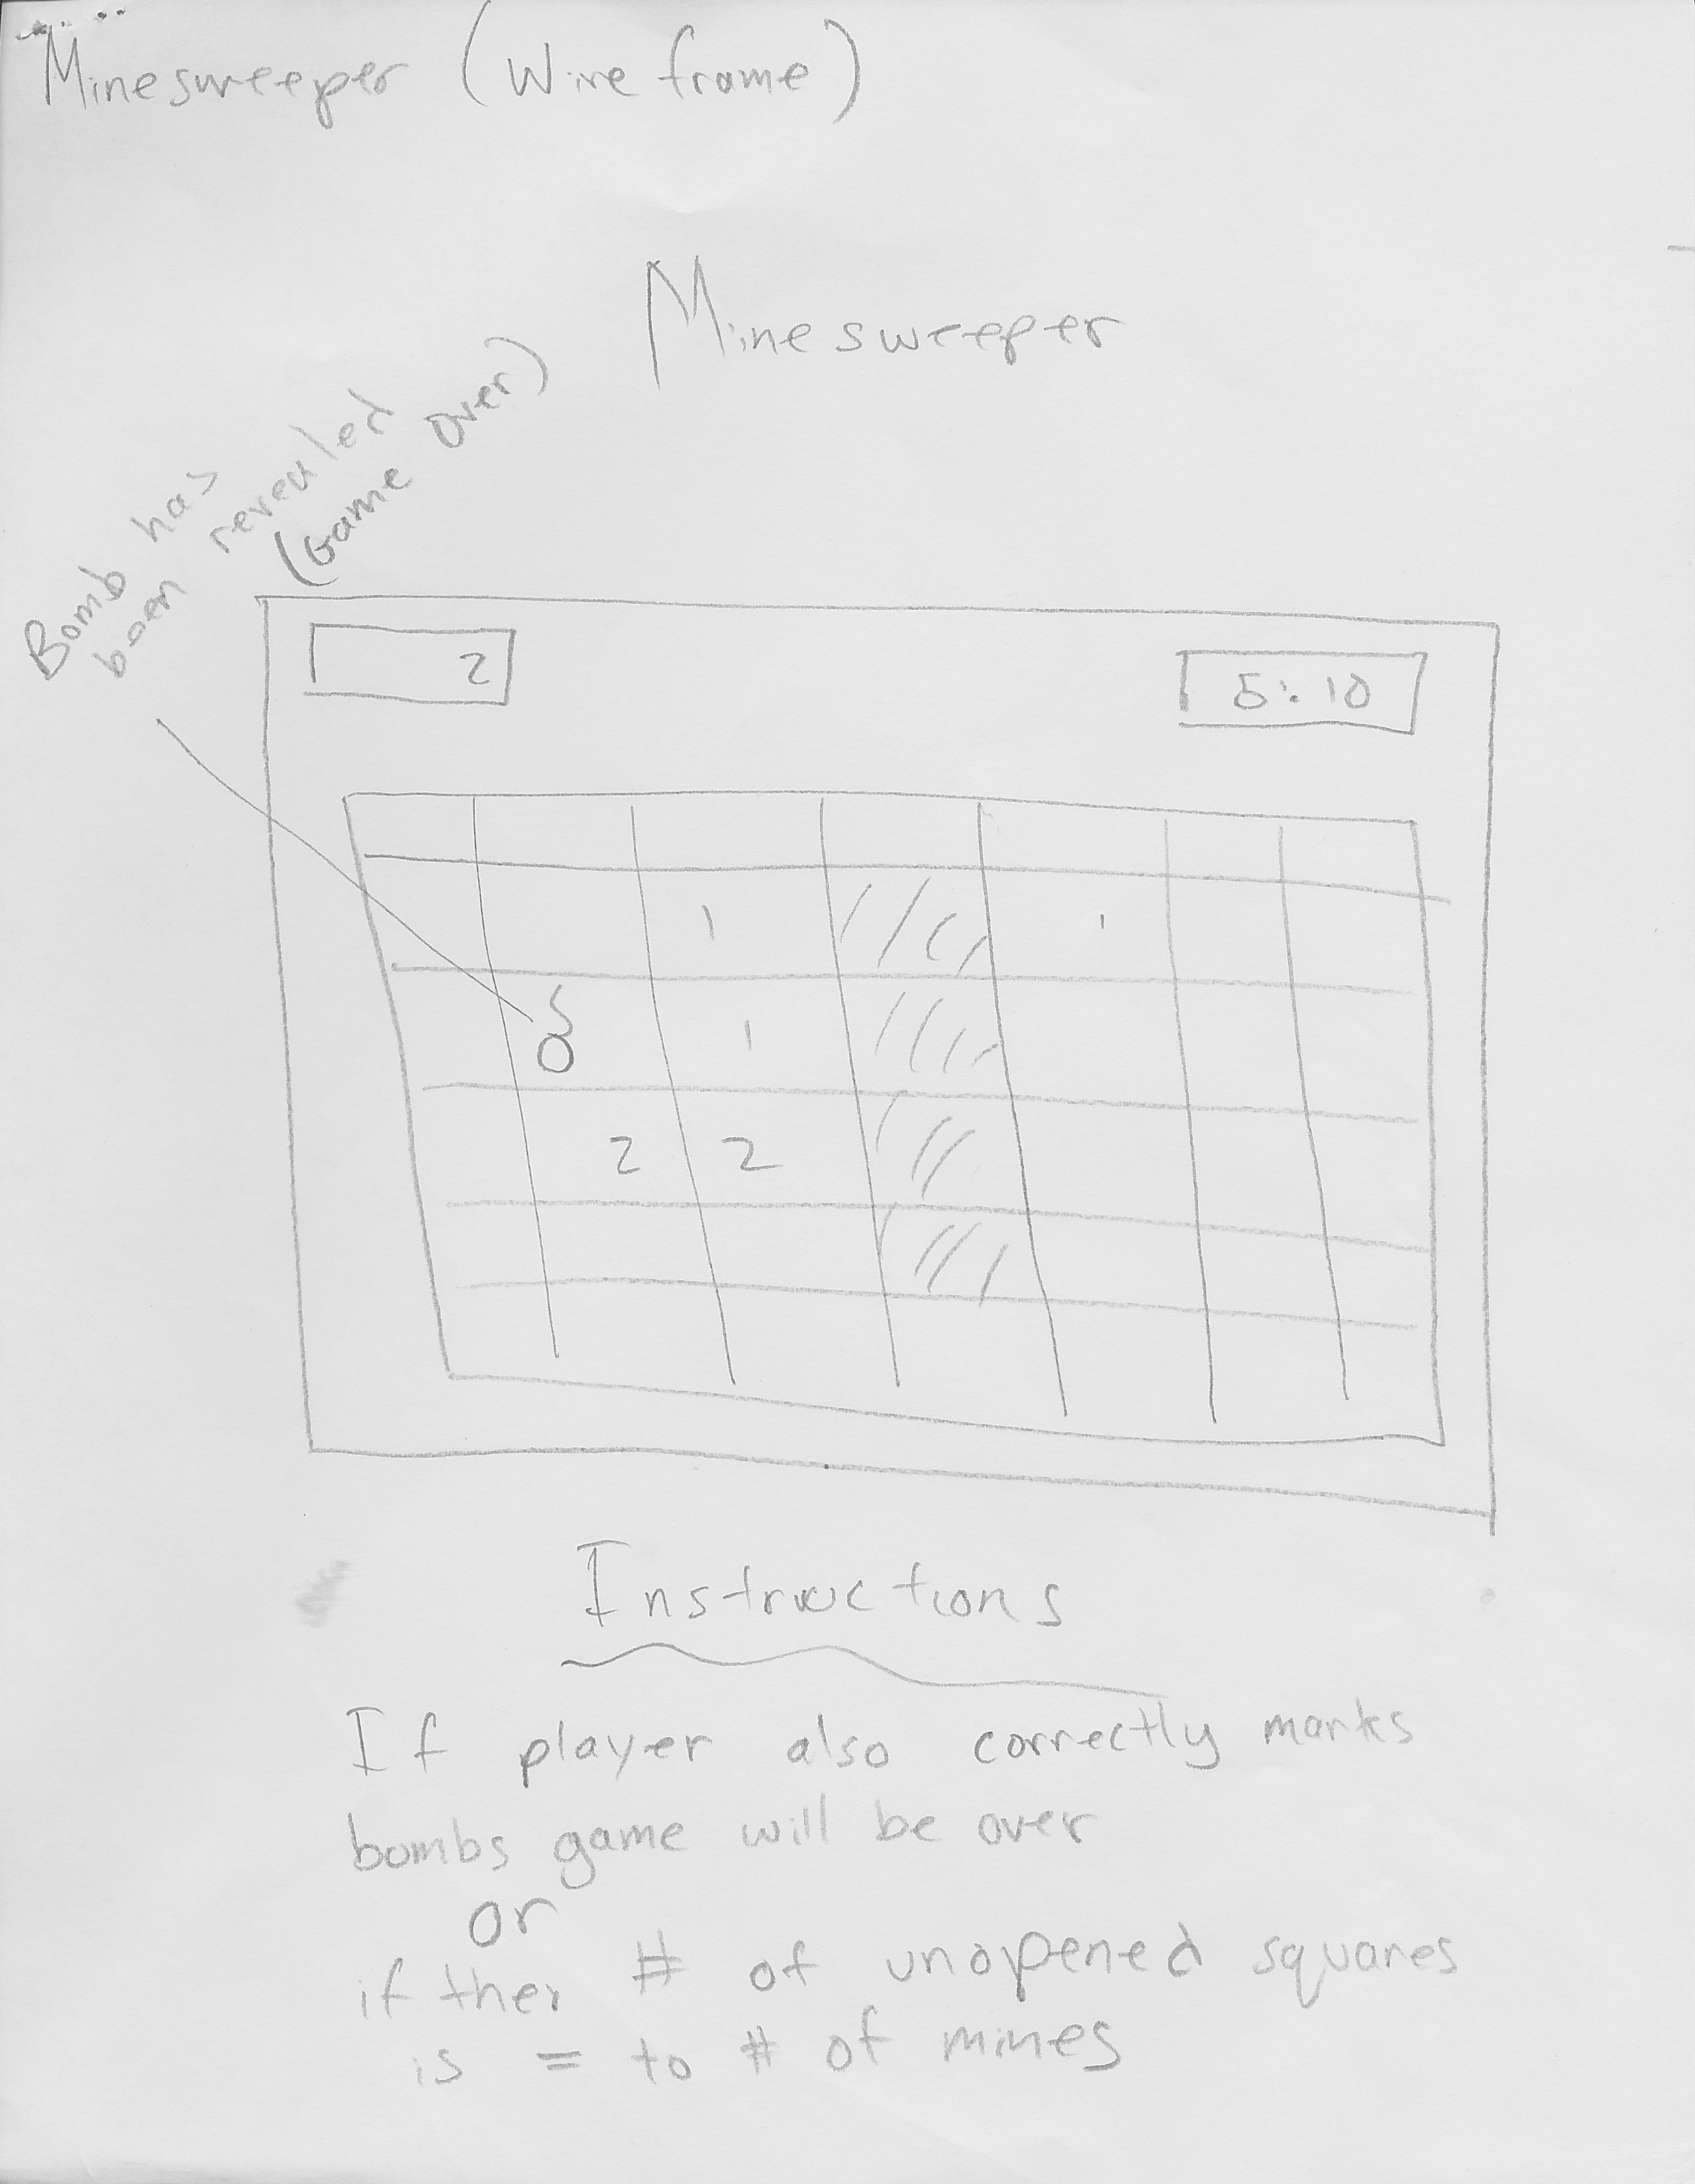 Minesweeper (Wireframe)
Minesweeper
Bomb has
been revealed
(Game Over)
2
5:10
1 1
1
2 2
Instructions
If player also correctly marks
bombs game will be over
or
if ther # of unopened squares
is = to # of mines